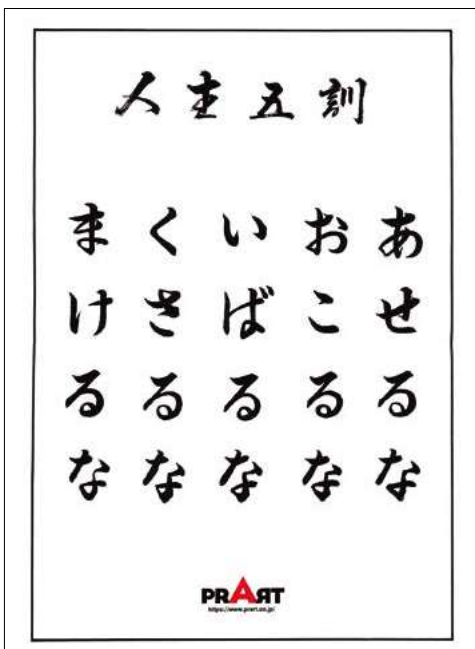 人生五訓
あせるな
おこるな
いばるな
くさるな
まけるな
PRART
https://www.prart.co.jp/